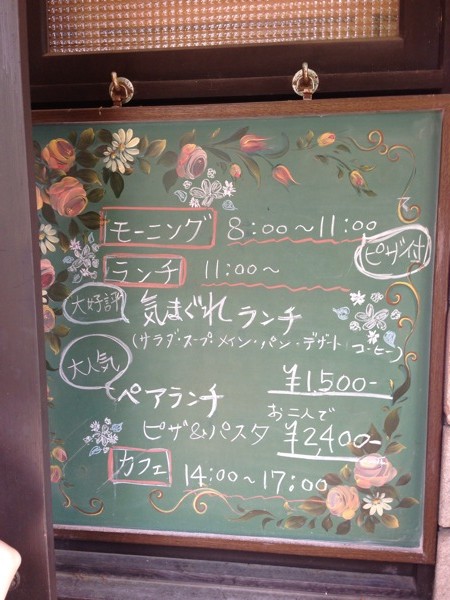 モーニング 8:00～11:00
ピザ付
ランチ 11:00～
大好評 気まぐれランチ
(サラダ・スープ・メイン・パン・デザート コーヒー)
¥1,500-
大人気
ペアランチ
お二人で
ピザ&パスタ ¥2,400-
カフェ 14:00～17:00